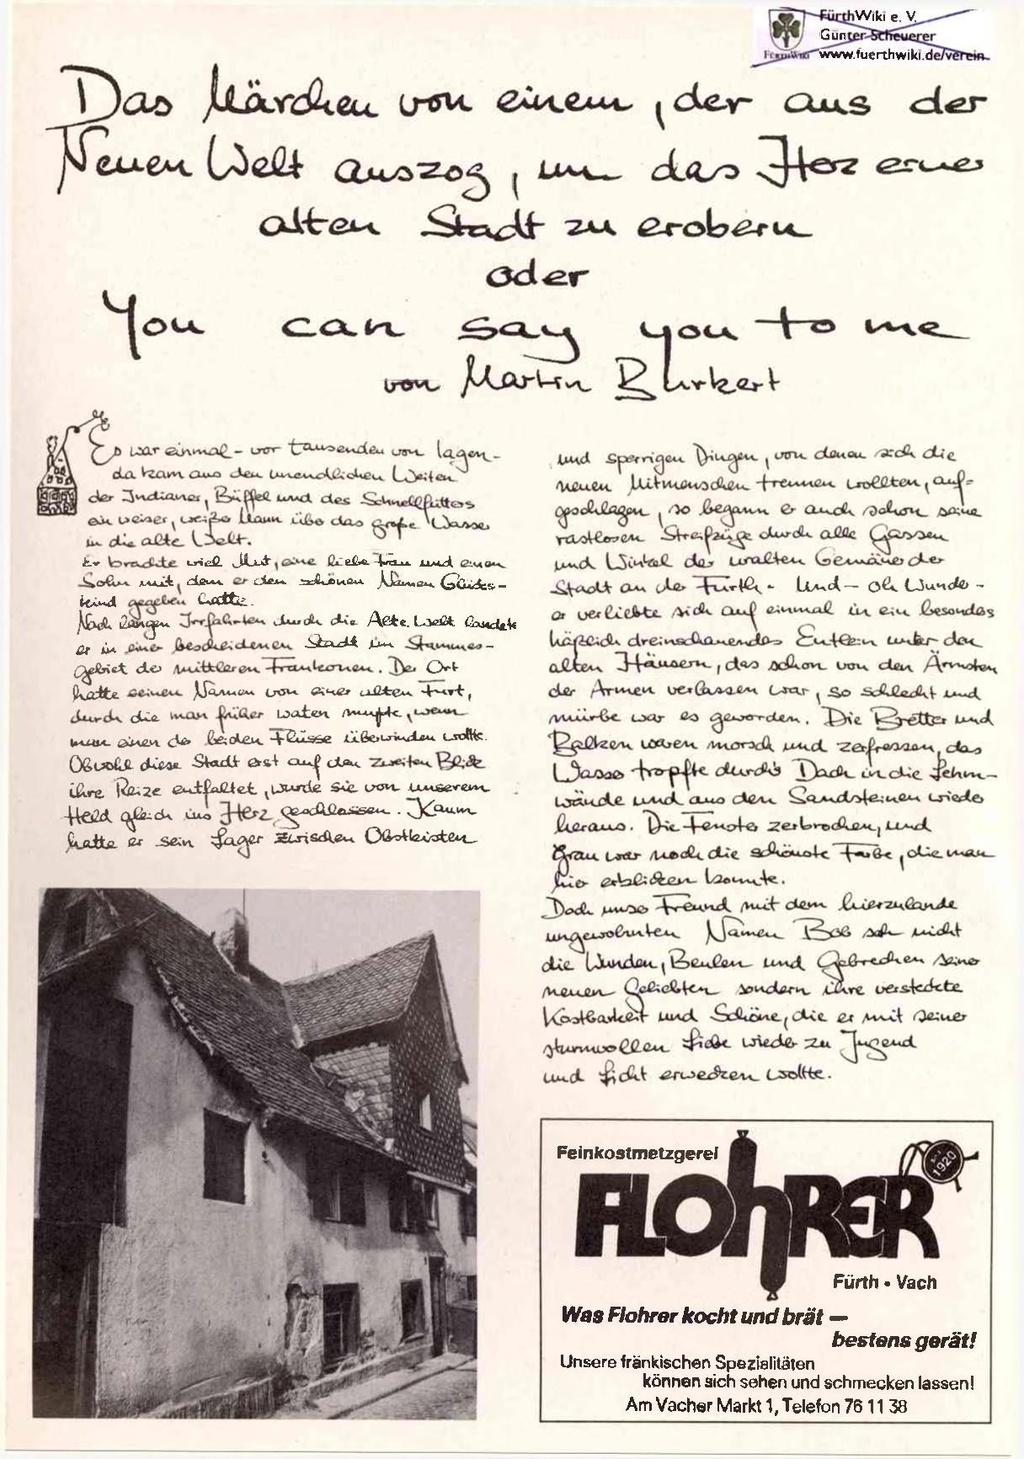 FürthWiki e. V.
Günter Scheuerer
www.fuerthwiki.de/verein
FürthWiki
Das Märchen von einem, der aus der
Neuen Welt auszog, um das Herz einer
alten Stadt zu erobern
oder
You can say you to me
von Martin Burkert
Es war einmal - vor tausenden von Tagen -
da kam aus den unendlichen Weiten
der Indianer, Büffel und des Schnellfutters
ein weiser, weißer Mann über das große Wasser
in die alte Welt.
Er brachte viel Mut, eine liebe Frau und einen
Sohn mit, dem er den schönen Namen Glücks-
kind gegeben hatte.
Nach langen Irrfahrten durch die Alte Welt landete
er in einer bescheidenen Stadt im Stammes-
gebiet der mittleren Frankonen. Der Ort
hatte seinen Namen von einer alten Furt,
durch die man früher waten mußte, wenn
man einen der beiden Flüsse überwinden wollte.
Obwohl diese Stadt erst auf den zweiten Blick
ihre Reize entfaltet, wurde sie von unserem
Held gleich ins Herz geschlossen. Kaum
hatte er sein Lager zwischen Obstkisten
und sperrigen Dingen, von denen sich die
neuen Mitmenschen trennen wollten, auf-
geschlagen, so begann er auch schon seine
rastlosen Streifzüge durch alle Gassen
und Winkel der uralten Gemäuer der
Stadt an der Fürth. Und - oh Wunder -
er verliebte sich auf einmal in ein besonders
häßlich dreinschauendes Entlein unter den
alten Häusern, das schon von den Ärmsten
der Armen verlassen war, so schlecht und
mürbe war es geworden. Die Bretter und
Balken waren morsch und zerfressen, das
Wasser tropfte durch's Dach in die Lehm-
wände und aus den Sandsteinen wieder
heraus. Die Fenster zerbrochen, und
Grau war noch die schönste Farbe, die man
hier erblicken konnte.
Doch unser Freund mit dem hierzulande
ungewohnten Namen Bob sah nicht
die Wunden, Beulen und Gebrechen seiner
neuen Geliebten sondern ihre versteckte
Kostbarkeit und Schöne, die er mit seiner
sturmvollen Liebe wieder zu Jugend
und Licht erwecken wollte.
Feinkostmetzgerei
FLOhRER
1920
Fürth • Vach
Was Flohrer kocht und brät —
bestens gerät!
Unsere fränkischen Spezialitäten
können sich sehen und schmecken lassen!
Am Vacher Markt 1, Telefon 76 11 38